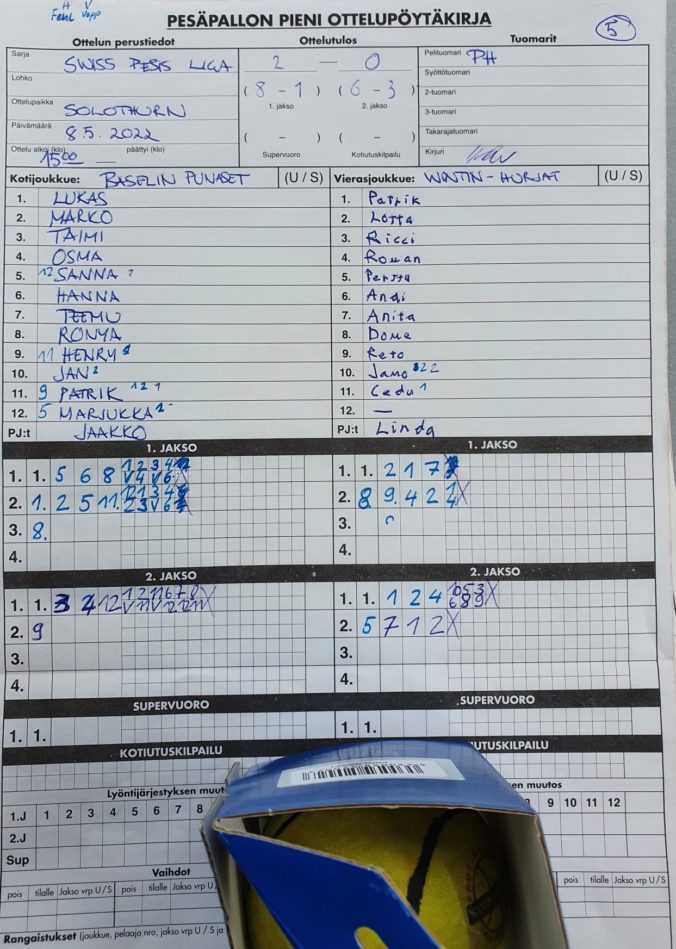 H V
PESÄPALLON PIENI OTTELUPÖYTÄKIRJA
5
Ottelun perustiedot Ottelutulos Tuomarit
Sarja SWISS PESIS LIGA 2 — 0 Pelituomari PH
Lohko (8 - 1) (6 - 3) Syöttötuomari
1. jakso 2. jakso 2-tuomari
Ottelupaikka SOLOTHURN 3-tuomari
Päivämäärä 8.5.2022 ( - ) ( - ) Takarajatuomari
Ottelu alkoi (klo) 15 00 päättyi (klo) Supervuoro Kotiutuskilpailu Kirjuri
Kotijoukkue: BASELIN PUNASET (U / S) Vierasjoukkue: WINTIN-HURJAT (U / S)
1. LUKAS 1. Patrik
2. MARKO 2. Lotta
3. TAIMI 3. Ricci
4. OSMA 4. Roman
5. 12 SANNA 5. Pertta
6. HANNA 6. Andi
7. TEEMU 7. Anita
8. RONYA 8. Dome
9. 11 HENRY 9. Reto
10. JAN 10. Jamo
11. 9 PATRIK 12 1 11. Cedu 1
12. 5 MARJUKKA 12. —
PJ:t JAAKKO PJ:t Linda
1. JAKSO 1. JAKSO
1. 1. 5 6 8 1. 1. 2 1 7
2. 1. 2 5 11. 2. 8 9. 4 2
3. 8. 3.
4. 4.
2. JAKSO 2. JAKSO
1. 1. 3 4 12 1. 1. 1 2 4
2. 9 2. 5 7 1 2 X
3. 3.
4. 4.
SUPERVUORO SUPERVUORO
1. 1. 1. 1.
KOTIUTUSKILPAILU UTUSKILPAILU
Lyöntijärjestyksen muut en muutos
1.J 1 2 3 4 5 6 7 8 9 10 11 12
2.J
Sup
Vaihdot
pois tilalle Jakso vrp U / S pois tilalle Jakso vrp U pois tilalle Jakso vrp U / S
Rangaistukset (joukkue, pelaaja nro, jakso vrp U / S ja